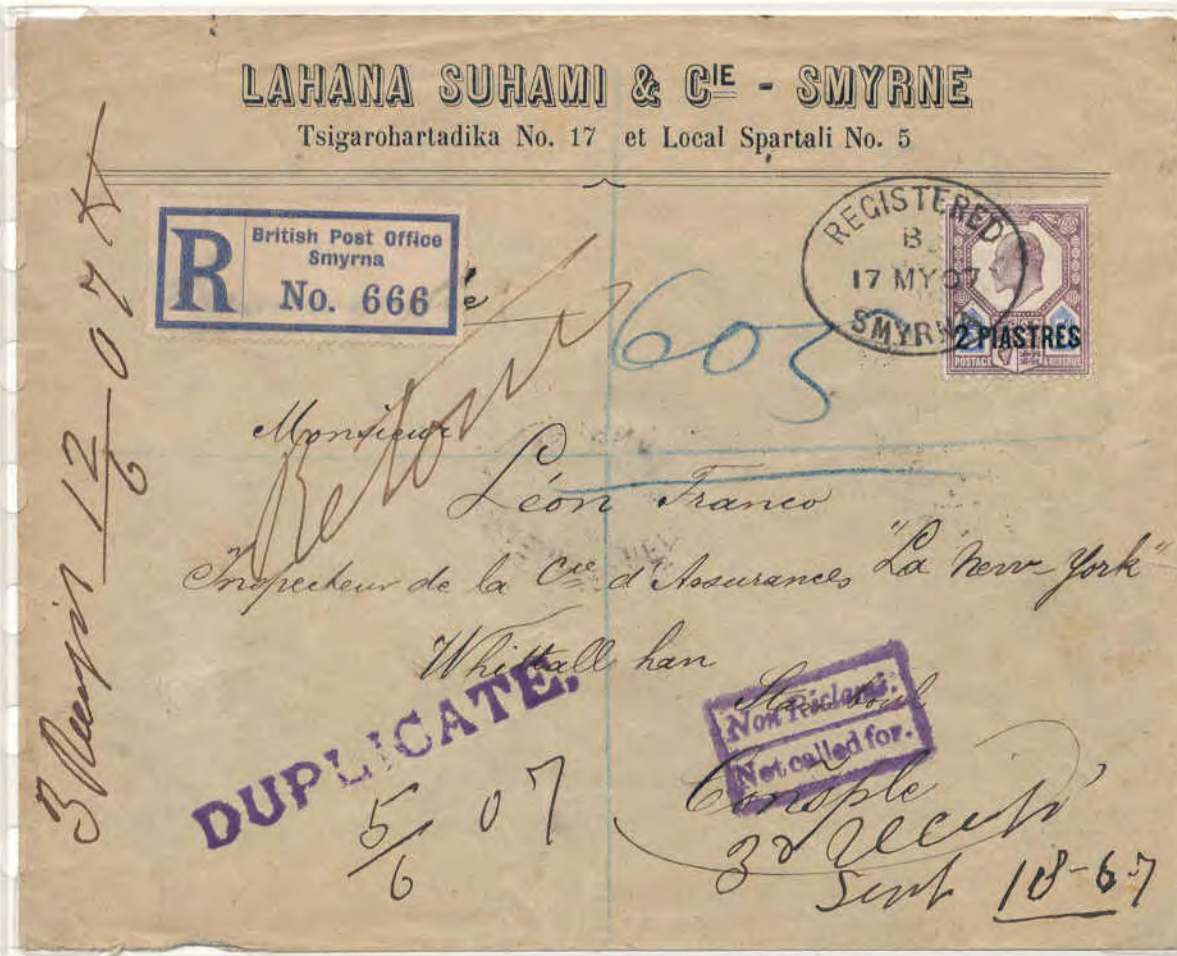 LAHANA SUHAMI & CIE - SMYRNE
Tsigarohartadika No. 17 et Local Spartali No. 5
R
British Post Office
Smyrna
No. 666
é
REGISTERED
B
17 MY 07
SMYRNA
2 PIASTRES
POSTAGE & REVENUE
603
Retour
Monsieur
Léon Franco
Inspecteur de la Cie d'Assurances "La New-York"
Whittall han
Stamboul
Consple
DUPLICATE.
5/6 07
Non Réclamé.
Not called for.
3d receipt
Sent 18-6-7
3 Receipt 12/6 07